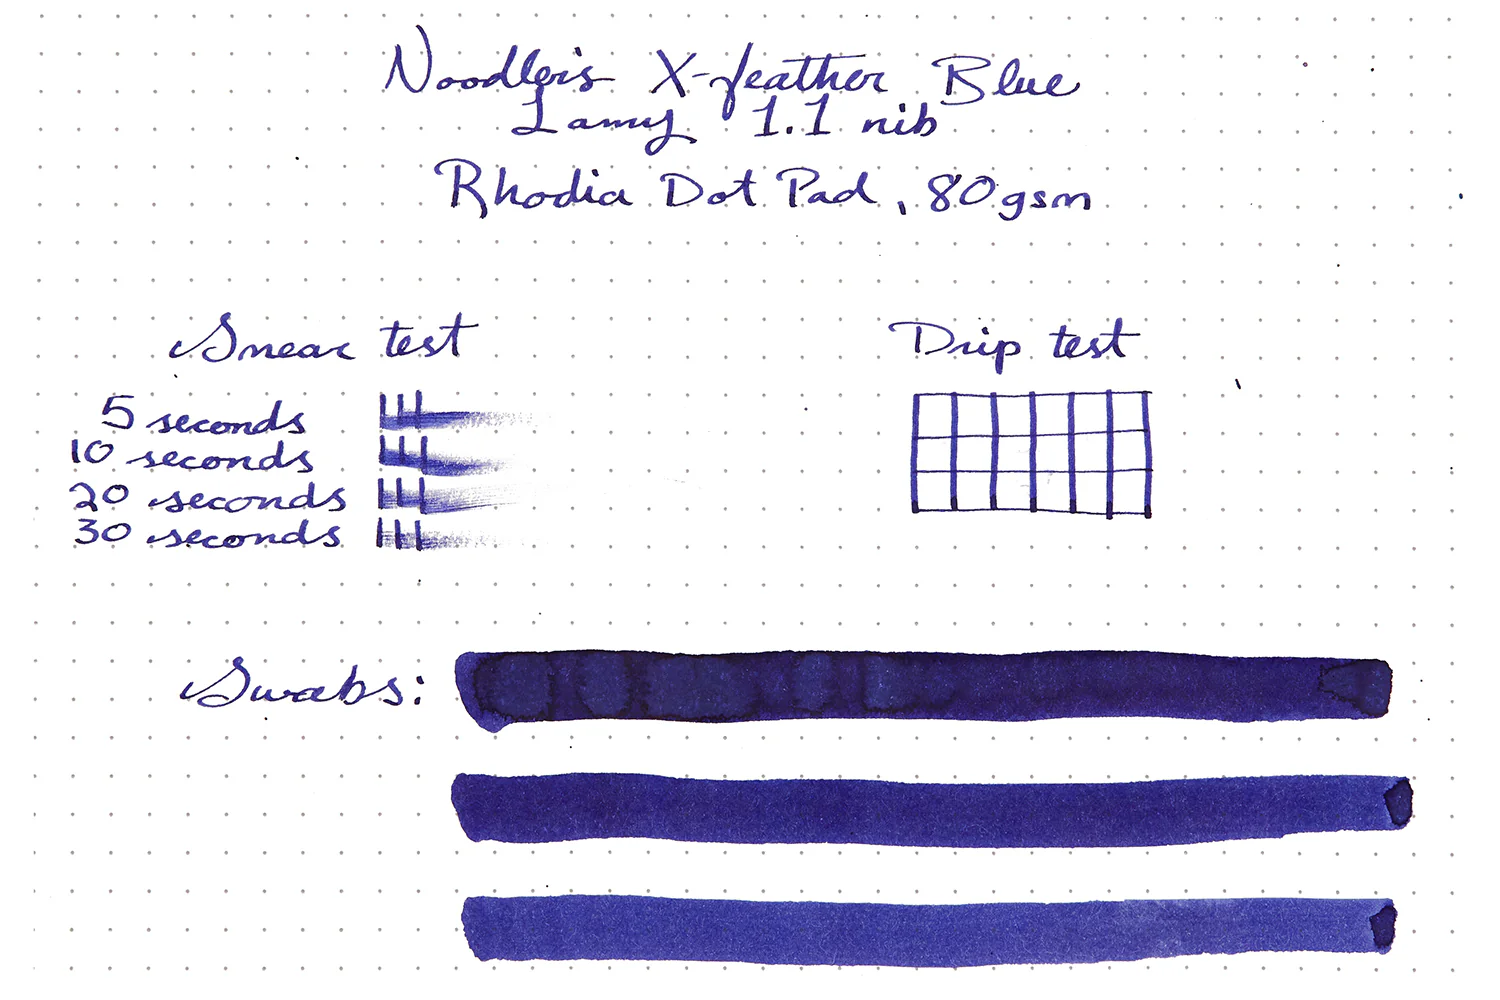 Noodler's X-feather Blue
Lamy 1.1 nib
Rhodia Dot Pad, 80gsm
Smear test
5 seconds
10 seconds
20 seconds
30 seconds
Drip test
Swabs: